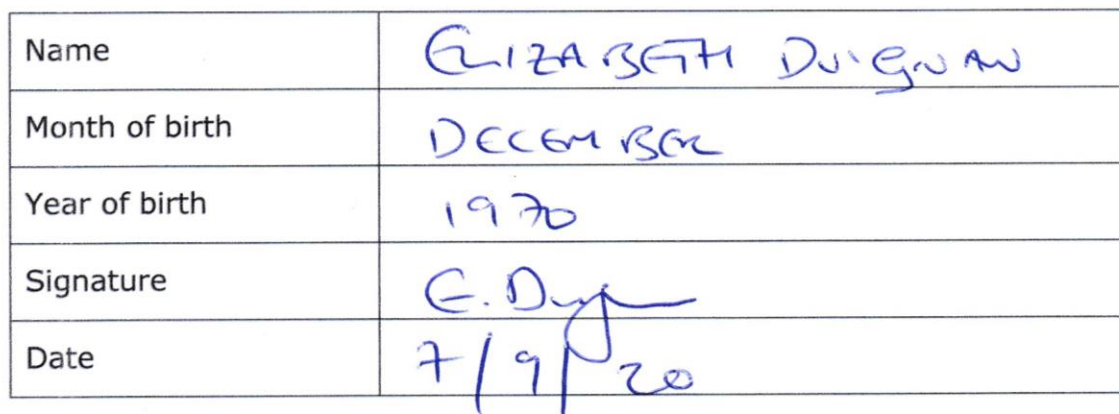 Name ELIZABETH DUIGNAN
Month of birth DECEMBER
Year of birth 1970
Signature E. Duignan
Date 7/9/20